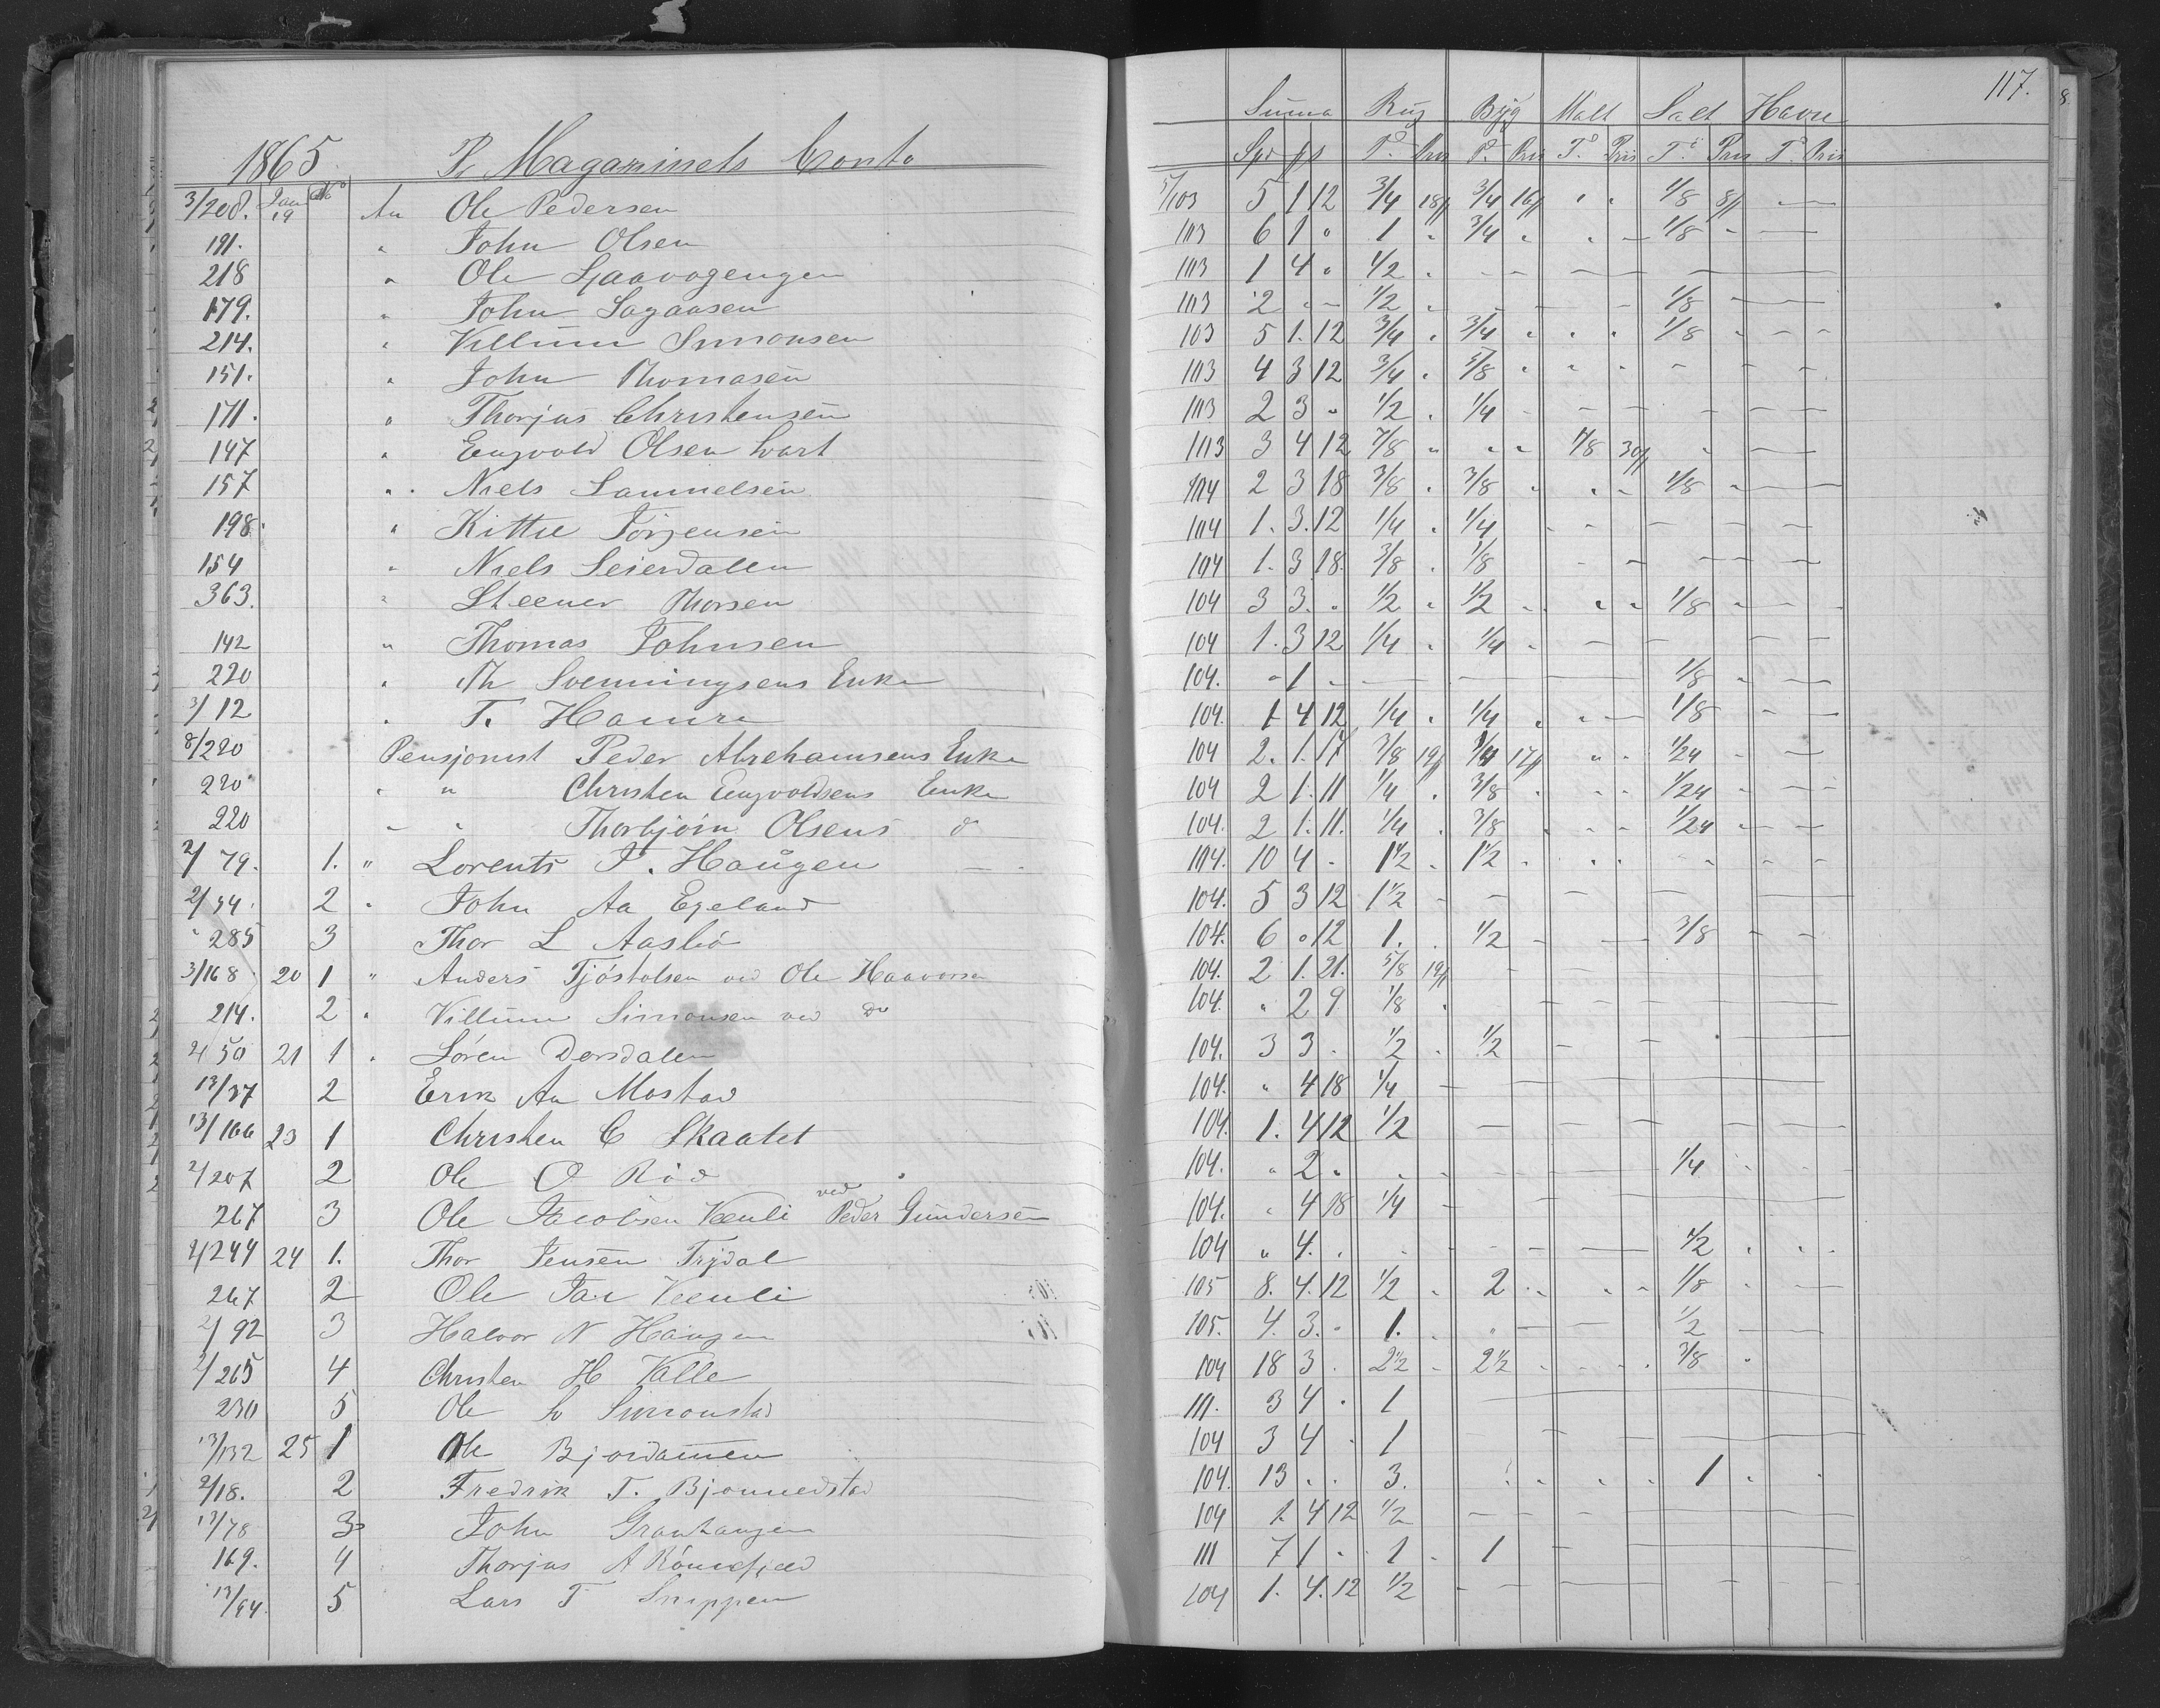 117.
Summa Rug Byg Malt Salt Havre
1865 Pr Magazinets Conto Spd T. Pris T. Pris T. Pris T. Pris T. Pris
3/208. Jan 19 No An Ole Pedersen 5/103 5 1 12 3/4 18 3/4 16 1/8 8
191. " John Olsen 103 6 1 " 1 " 3/4 " 1/8 "
218 " Ole 103 1 4 " 1/2
179. " John Sagaasen 103 2 1/2 1/8
214. " Villum Simonsen 103 5 1. 12 3/4 " 3/4 " 1/8
151. " John Thomasen 103 4 3 12 3/4 " 5/8
171. " Thorjus Christensen 103 2 3 " 1/2 1/4
147 " Engvold Olsen 103 3 4 12 7/8 1/8 30
157 " Niels Samuelsen 104 2 3 18 3/8 " 3/8 1/8
198 " Kittil Jörgensen 104 1. 3. 12 1/4 1/4
154 " Niels Seierdalen 104 1. 3 18. 3/8 1/8
363. " Steener Thorsen 104 3 3. " 1/2 1/2 1/8
142 " Thomas Johnsen 104 1. 3 12 1/4 1/4
220 " Th Svenningsens Enke 104. " 1 " 1/8
3/12 " T. Hamre 104. 1 4 12 1/4 1/4 1/8
8/220 Pensjonist Peder Abrehamsens Enke 104 2. 1. 17 3/8 19 1/4 17 1/24
220 " " Christen Engvoldsens Enke 104 2 1. 11 1/4 3/8 1/24
220 " " Thorbjörn Olsens do 104. 2 1. 11. 1/4 3/8 1/24
2/79. 1. " Lorents T. Haugen 104. 10 4 - 1 1/2 1 1/2
2/34. 2 " John Aa Egeland 104. 5 3 12 1 1/2
285 3 Thor L Aasbö 104. 6 " 12 1. 1/2 3/8
3/168 20 1 " Anders Tjöstolsen ved Ole Haavorsen 104. 2 1. 21. 5/8 19
214. 2 " Villum Simonsen ved Do 104. " 2 9 1/8
2/50 21 1 " Sören Dorsdalen 104. 3 3 1/2 1/2
13/37 2 Erik Aa Mostad 104. " 4 18 1/4
13/166 23 1 Christen C Skaatet 104. 1. 4 12 1/2
2/207 2 Ole O Röd 104. " 2 " 1/4
267 3 Ole Jacobsen Veenli ved Peder Gundersen 104. " 4 18 1/4
2/244 24 1. Thor Jensen Trydal 104 " 4. 1/2
267 2 Ole Jac Veenli 105 8. 4. 12 1/2 2 1/8
2/92 3 Halvor N Haugen 105. 4. 3. 1. 1/2
2/265 4 Christen H Valle 104 18 3 2 1/2 2 1/2 3/8
230 5 Ole L Simonstad 111. 3 4 1
13/132 25 1 Ole Bjordammen 104 3 4 1
2/18. 2 Fredrik T. Bjonnedstad 104. 13 3. 1
13/78 3 John Granhaugen 104 1 4 12 1/2
169. 4 Thorjus A Rönnefjeld 111 7 1 1 1
13/94 5 Lars T Snippen 104 1. 4. 12 1/2